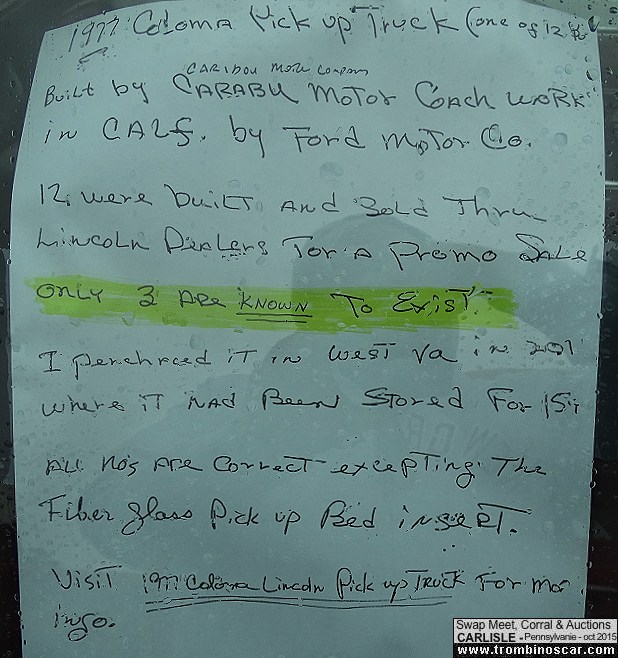 1977 Coloma Pick up Truck (one of 12
CARIBOU Motor Company
Built by CARABU Motor Coach Work
in CALf. by Ford Motor Co.
12 were built and Sold Thru
Lincoln Dealers For A Promo Sale
only 3 Are KNOWN To Exist.
I perchraced it in west Va in 201
where it had Been Stored For 15
All No's Are Correct excepting The
Fiber glass Pick up Bed insert.
Visit 1977 Coloma Lincoln Pick up Truck For mor
info.
Swap Meet, Corral & Auctions
CARLISLE - Pennsylvanie - oct 2015
www.trombinoscar.com